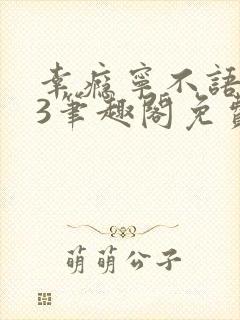 幸瘾宁不語
3筆趣閣免費
萌萌公子